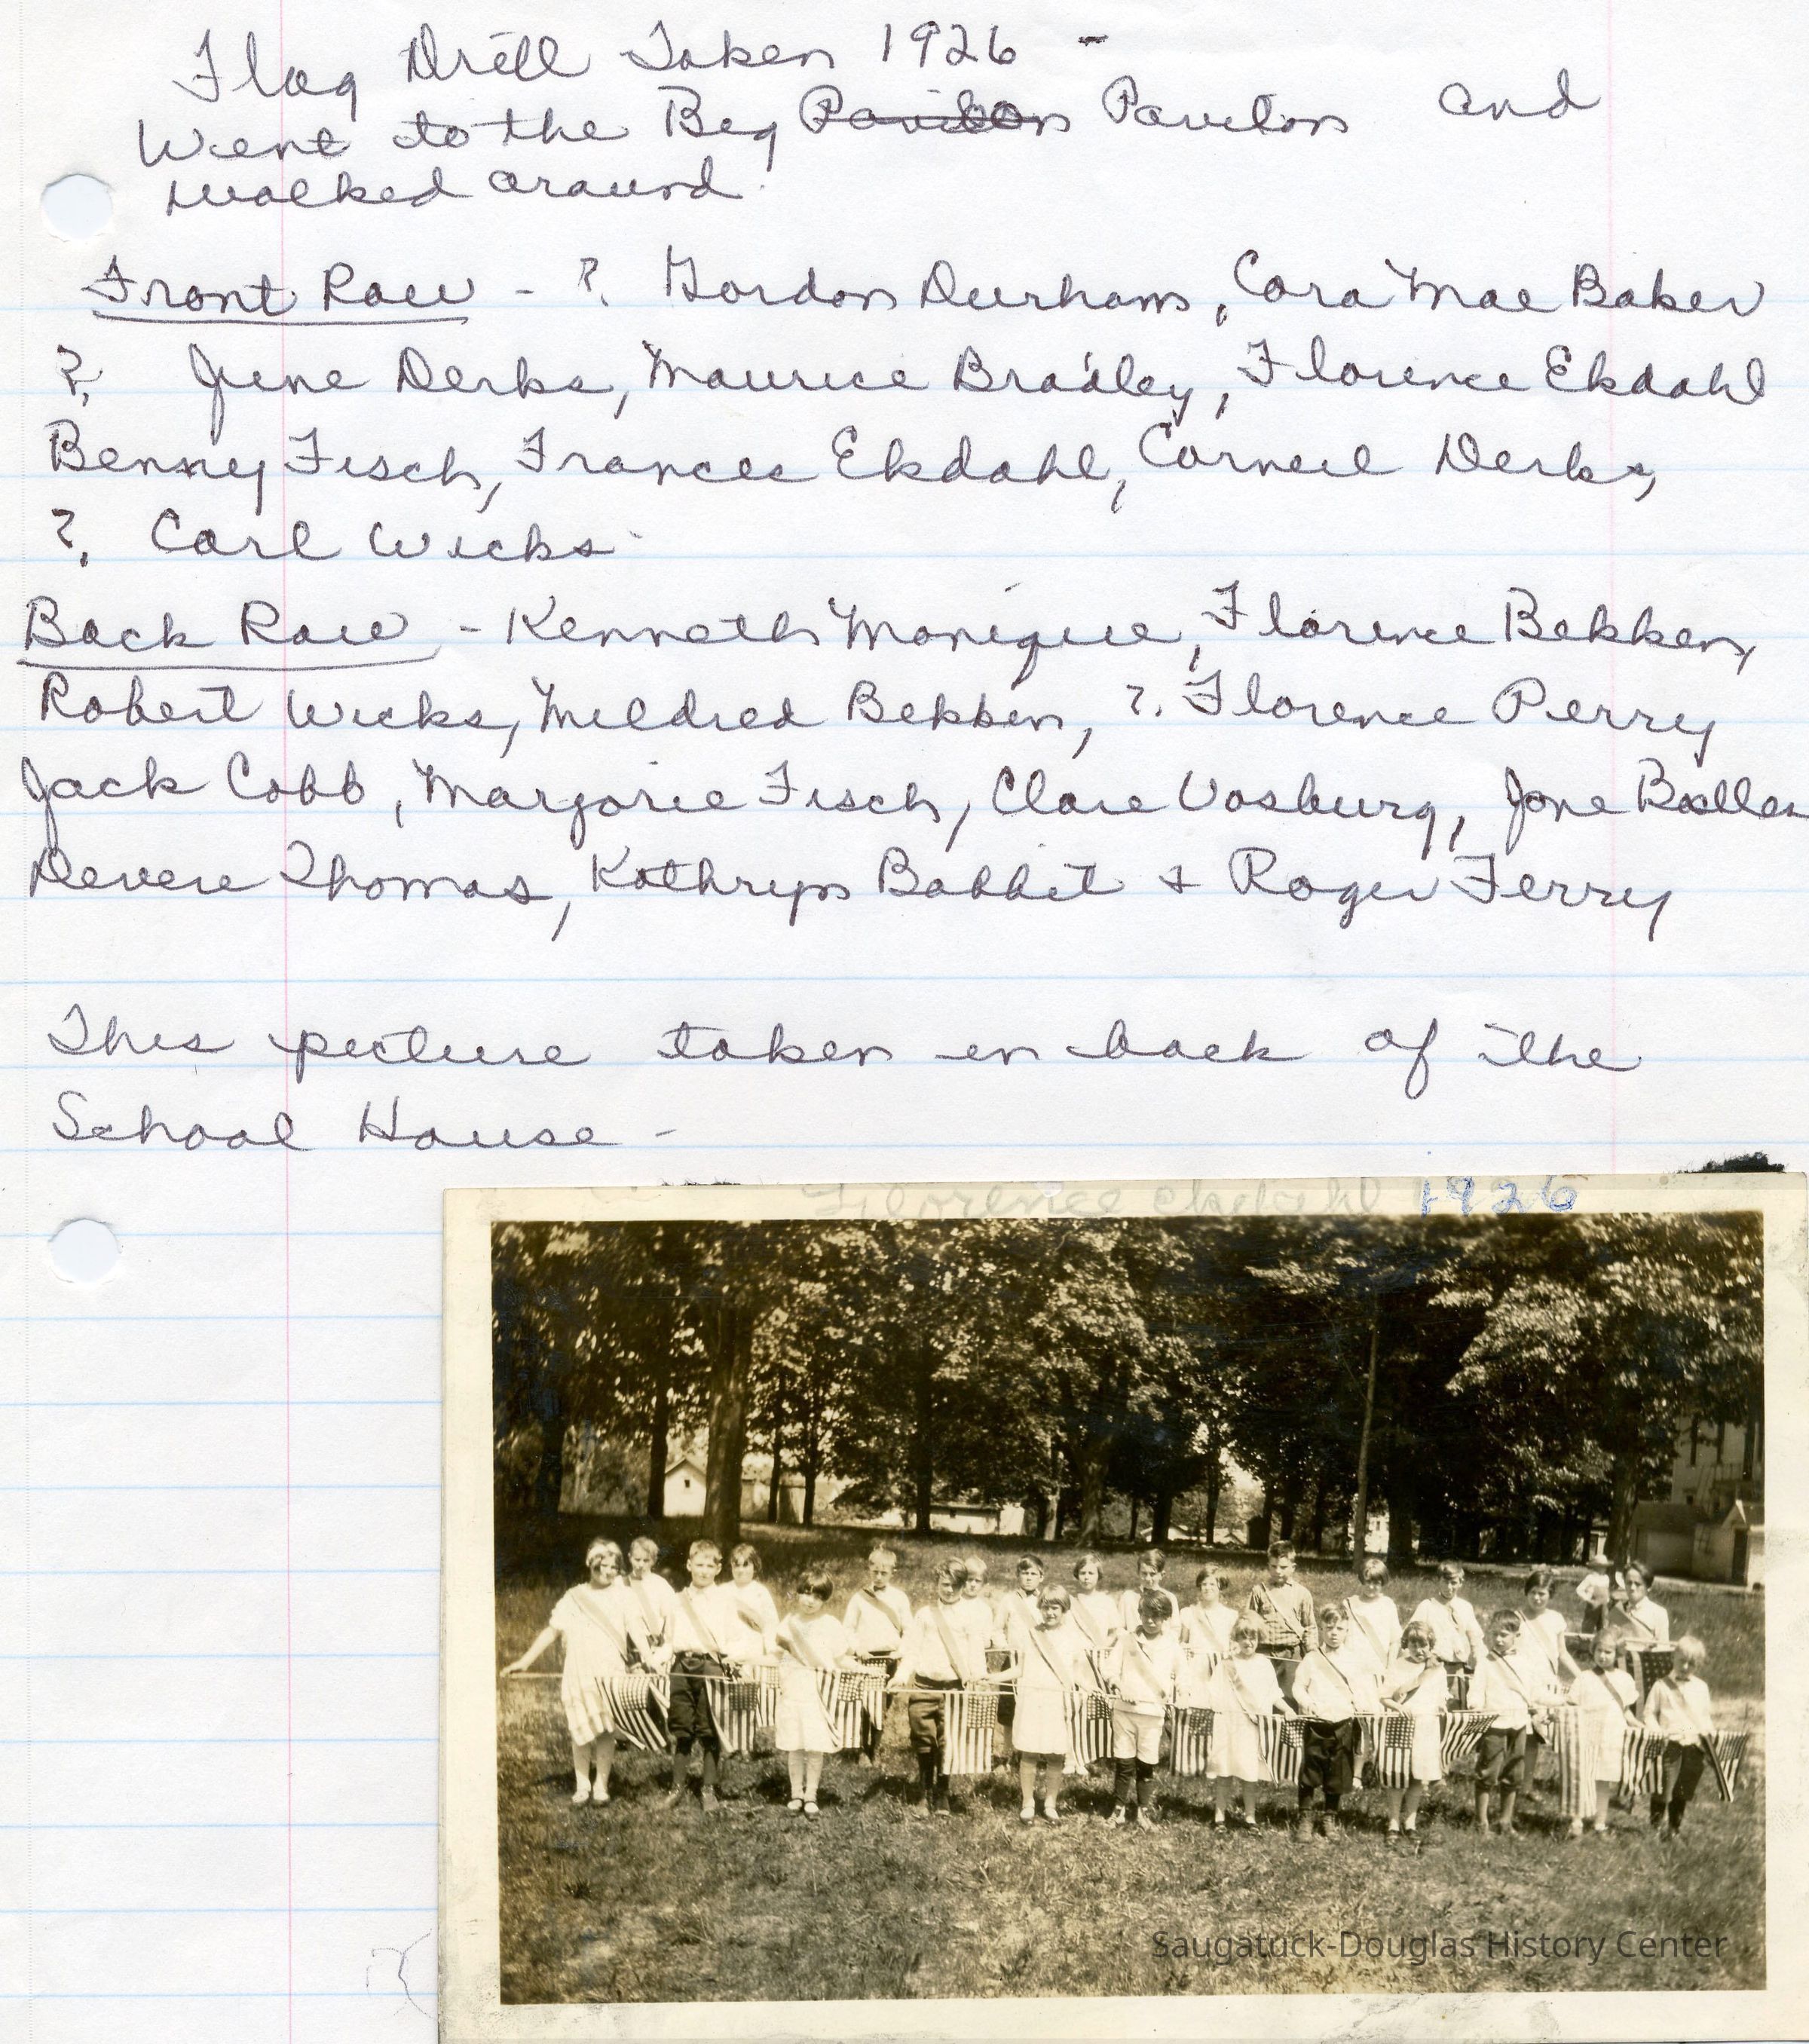 Flag Drill Taken 1926 -
Went to the Big Pavilon Pavilon and
walked around.
Front Row - ?. Gordon Durham, Cora Mae Baker
?. June Derks, Maurice Bradley, Florence Ekdahl
Benny Fisch, Frances Ekdahl, Corneil Derks,
?. Carl Wicks
Back Row - Kenneth Monique, Florence Bekken,
Robert Wicks, Mildred Bekken, ?. Florence Perry
Jack Cobb, Marjorie Fisch, Clare Vosburg, Jane
Devere Thomas, Kathryn Babbit & Roger Ferry
This picture taken in back of the
School House -
Florence Ekdahl 1926
Saugatuck-Douglas History Center